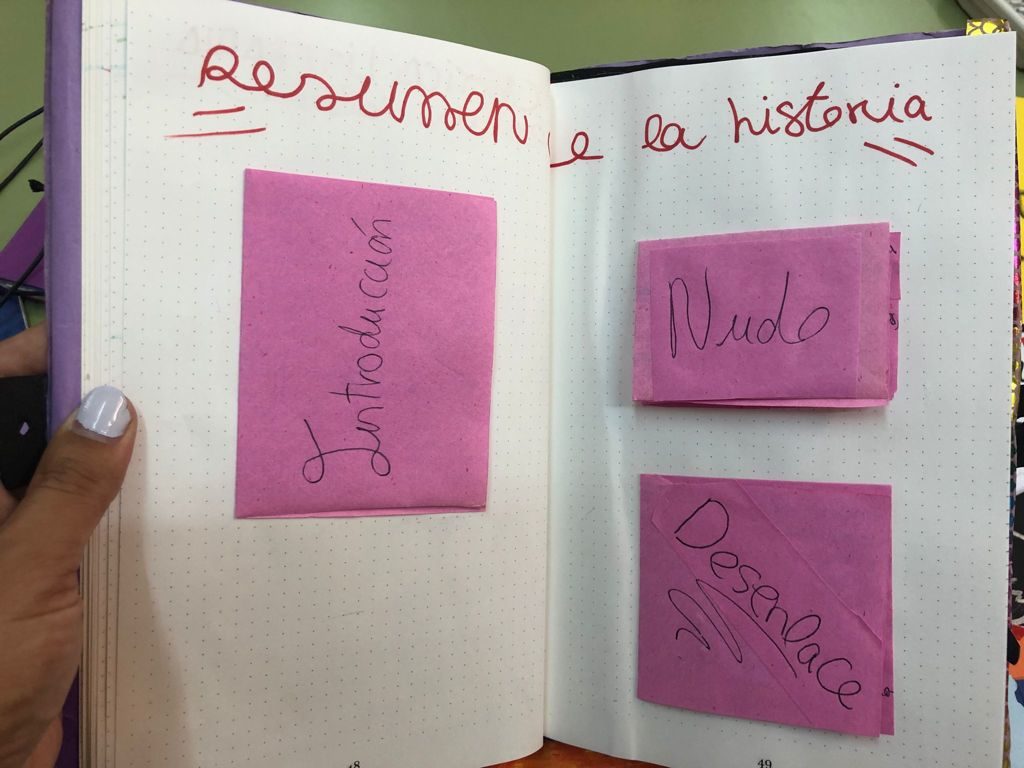 Resumen de la historia
Introducción
Nudo
Desenlace
49